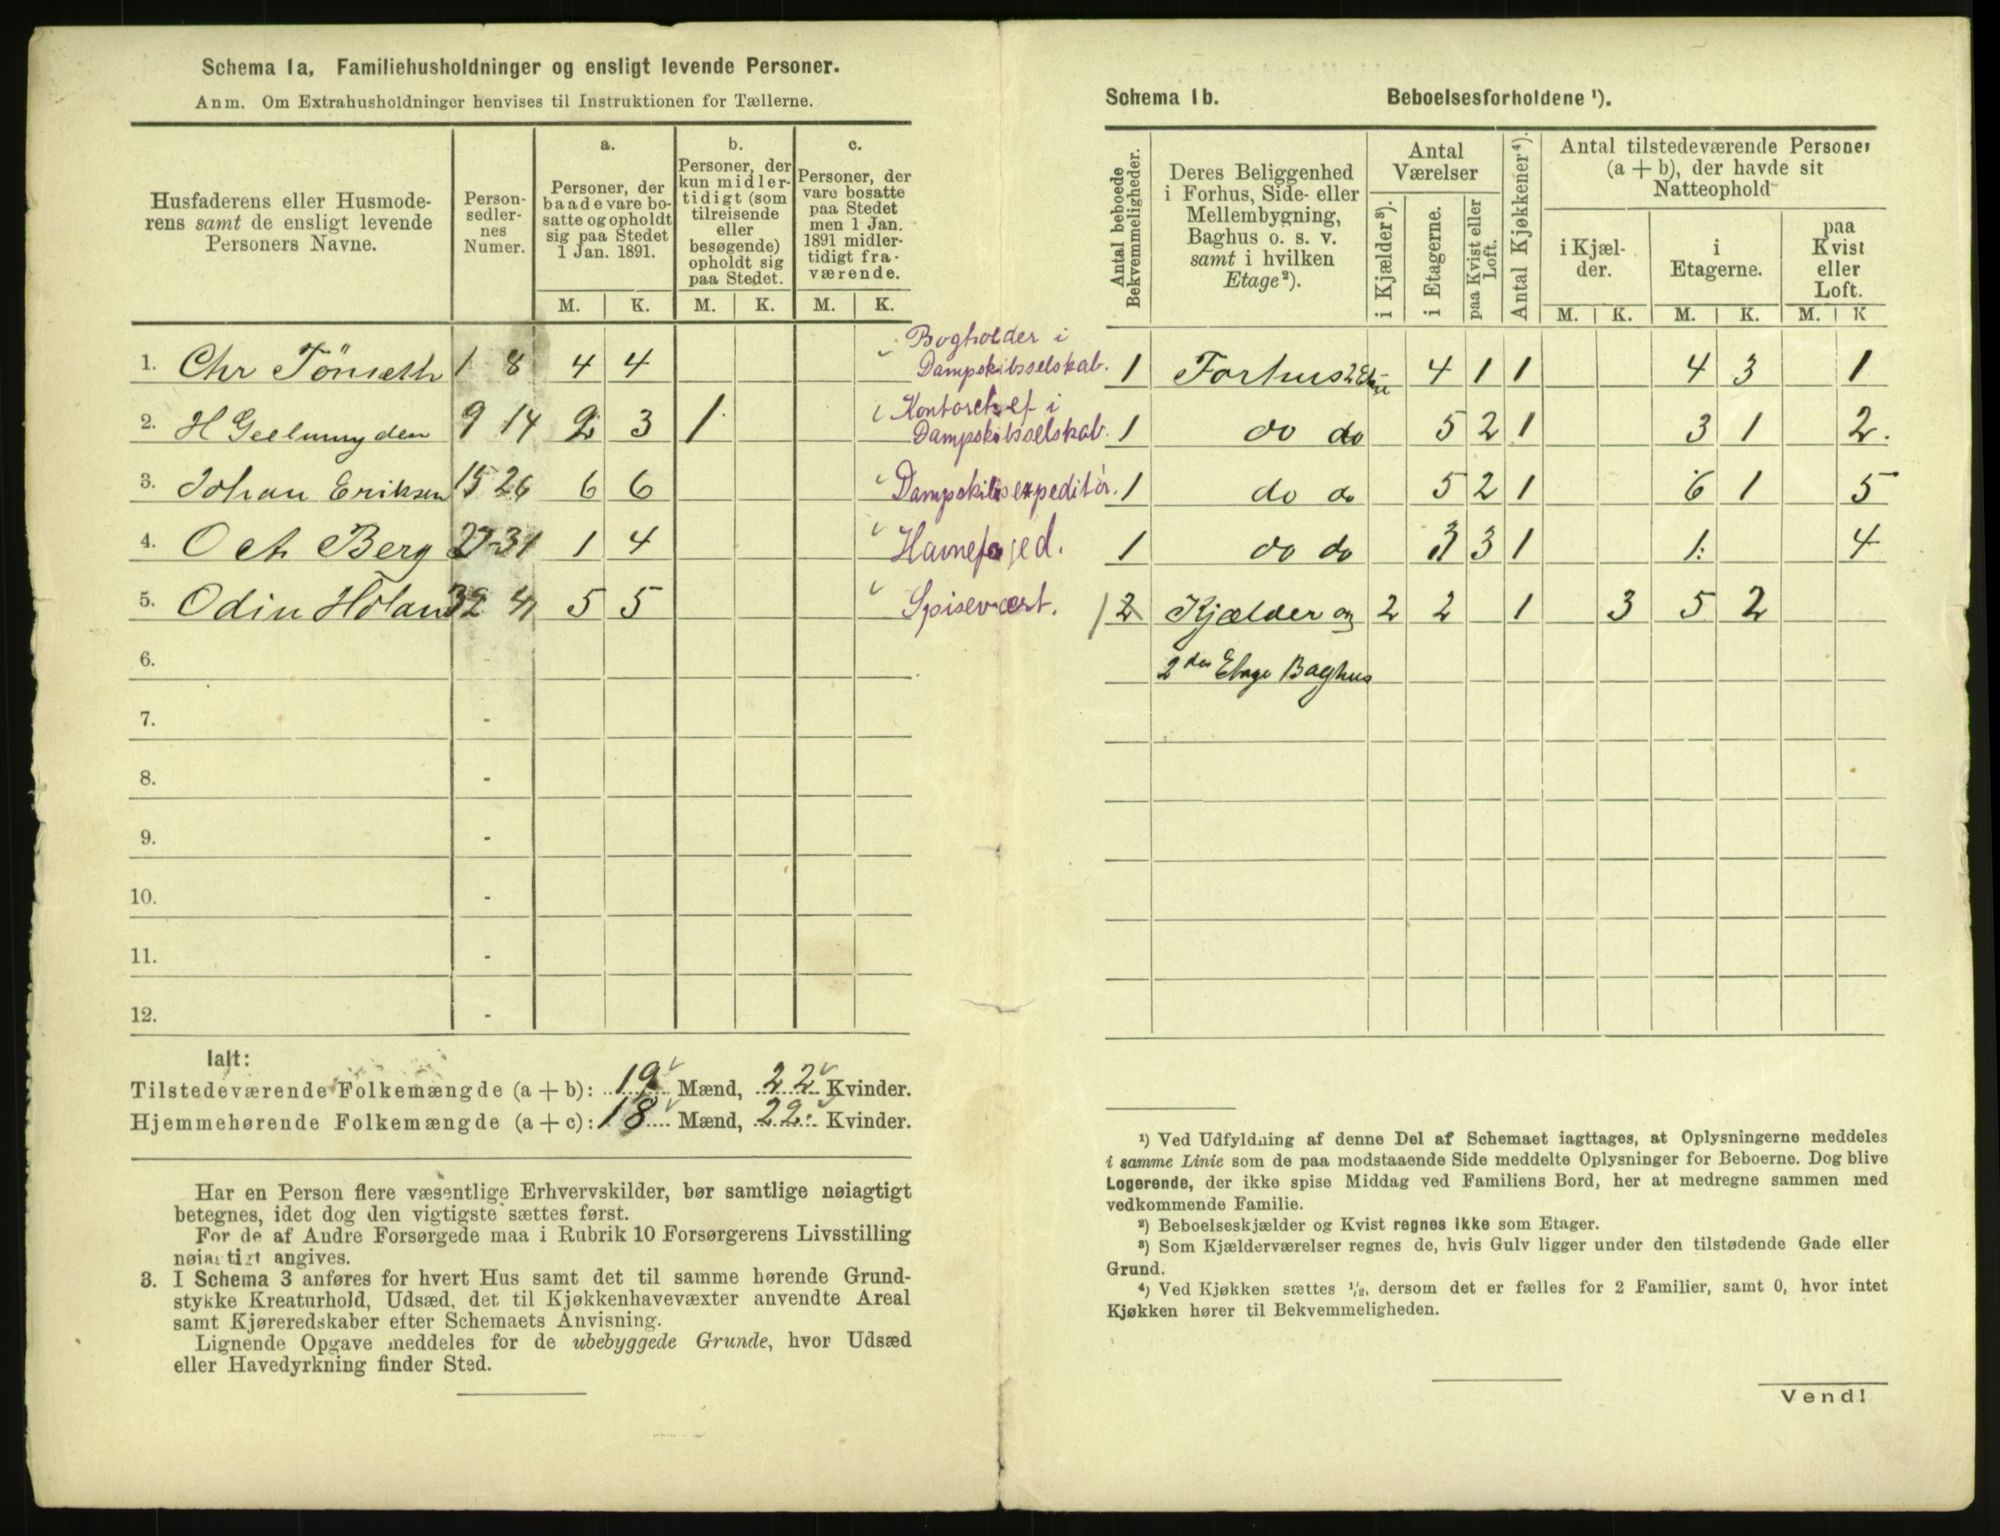 Schema 1a. Familiehusholdninger og ensligt levende Personer.
Anm. Om Extrahusholdninger henvises til Instruktionen for Tællerne.
Husfaderens eller Husmode-
rens samt de ensligt levende
Personers Navne.
Person-
sedler-
nes
Numer.
a.
Personer, der
baade vare bo-
satte og opholdt
sig paa Stedet
1 Jan. 1891.
b.
Personer, der
kun midler-
tidigt (som
tilreisende
eller
besøgende)
opholdt sig
paa Stedet.
c.
Personer, der
vare bosatte
paa Stedet
men 1 Jan.
1891 midler-
tidigt fra-
værende.
M. K. M. K. M. K.
1. Chr Tönseth 1 8 4 4 Bogholder i
Dampskibsselskab.
2. H Geelmuyden 9 14 2 3 1 Kontorchef i
Dampskibsselskab.
3. Johan Eriksen 15 26 6 6 Dampskibsexpeditör.
4. Och Berg 27-31 1 4 Havnefoged.
5. Odin Holan 32 41 5 5 Spisevært.
6.
7. -
8. -
9. -
10. -
11. -
12. -
Ialt:
Tilstedeværende Folkemængde (a + b): 19 Mænd, 22 Kvinder.
Hjemmehørende Folkemængde (a + c): 18 Mænd, 22 Kvinder.
Har en Person flere væsentlige Erhvervskilder, bør samtlige nøiagtigt
betegnes, idet dog den vigtigste sættes først.
For de af Andre Forsørgede maa i Rubrik 10 Forsørgerens Livsstilling
nøiagtigt angives.
3. I Schema 3 anføres for hvert Hus samt det til samme hørende Grund-
stykke Kreaturhold, Udsæd, det til Kjøkkenhavevæxter anvendte Areal
samt Kjøreredskaber efter Schemaets Anvisning.
Lignende Opgave meddeles for de ubebyggede Grunde, hvor Udsæd
eller Havedyrkning finder Sted.
Schema 1b. Beboelsesforholdene ¹).
Antal beboede
Bekvemmeligheder.
Deres Beliggenhed
i Forhus, Side- eller
Mellembygning,
Baghus o. s. v.
samt i hvilken
Etage²).
Antal
Værelser
i Kjælder³).
i Etagerne.
paa Kvist eller
Loft.
Antal Kjøkkener⁴).
Antal tilstedeværende Personer
(a + b), der havde sit
Natteophold
i Kjæl-
der.
i
Etagerne.
paa
Kvist
eller
Loft.
M. K. M. K. M. K
1 Forhus 2 Etage 4 1 1 4 3 1
1 do do 5 2 1 3 1 2.
1 do do 5 2 1 6 1 5
1 do do 3 3 1 1. 4
2 Kjælder og 2 2 1 3 5 2
2den Etage Baghus
¹) Ved Udfyldning af denne Del af Schemaet iagttages, at Oplysningerne meddeles
i samme Linie som de paa modstaaende Side meddelte Oplysninger for Beboerne. Dog blive
Logerende, der ikke spise Middag ved Familiens Bord, her at medregne sammen med
vedkommende Familie.
²) Beboelseskjælder og Kvist regnes ikke som Etager.
³) Som Kjælderværelser regnes de, hvis Gulv ligger under den tilstødende Gade eller
Grund.
⁴) Ved Kjøkken sættes ½, dersom det er fælles for 2 Familier, samt 0, hvor intet
Kjøkken hører til Bekvemmeligheden.
Vend!